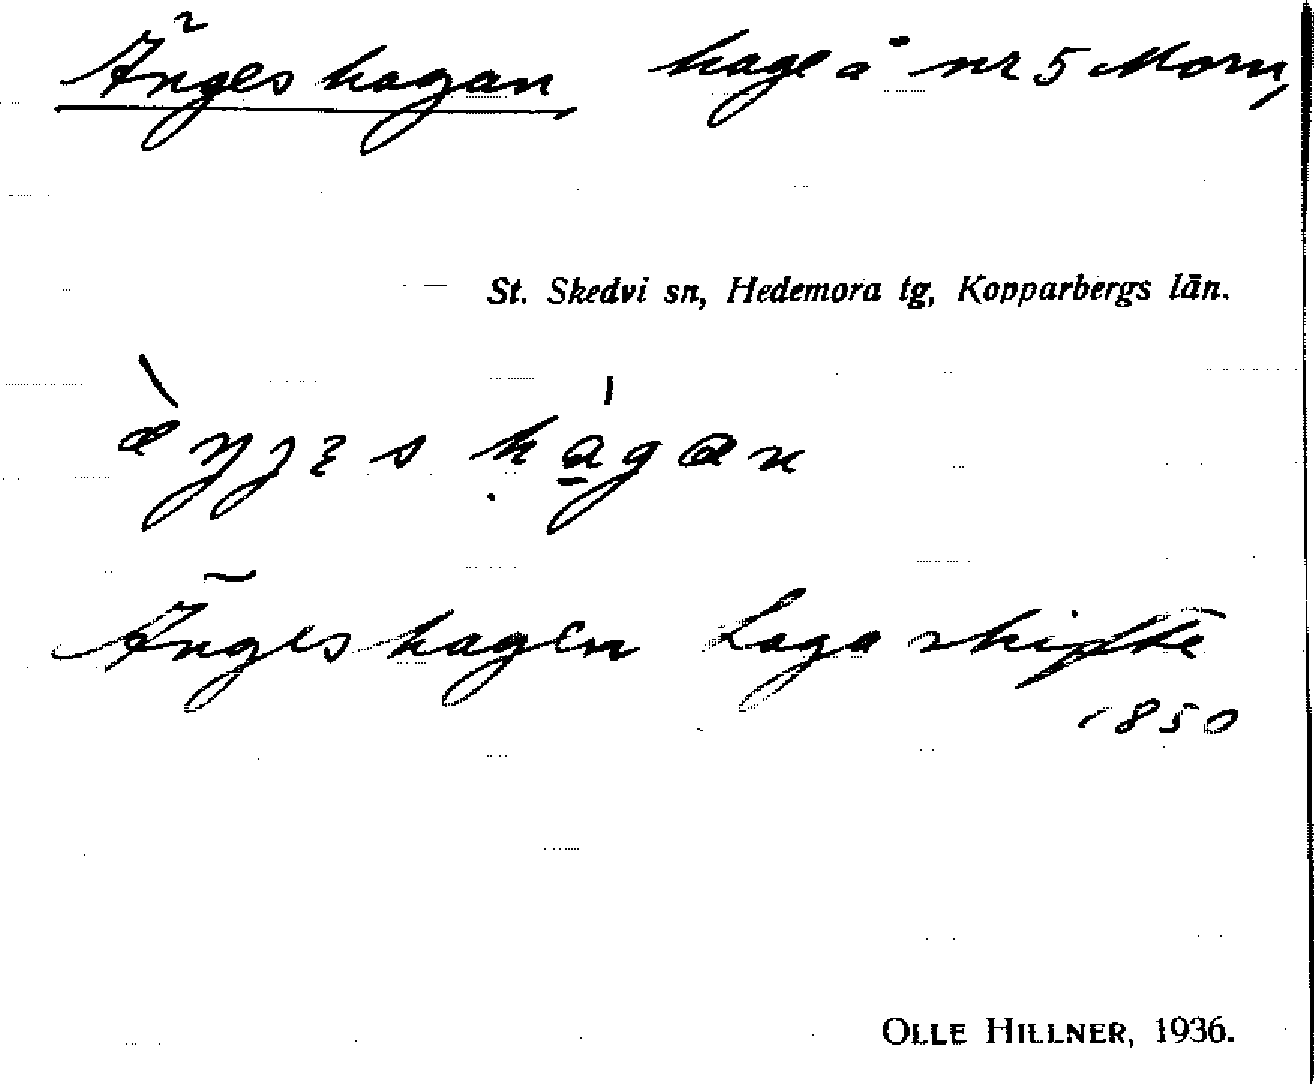 Ängeshagan hage å nr 5 Morn,
St. Skedvi sn, Hedemora tg, Kopparbergs län.
Ängeshagen Laga skifte
1850
OLLE HILLNER, 1936.